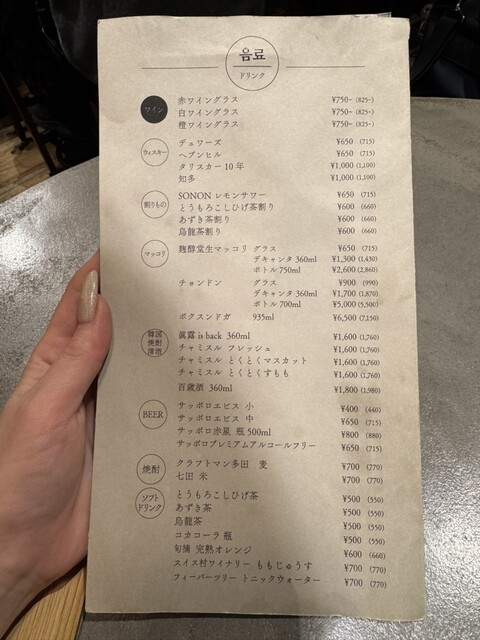 음료
ドリンク
ワイン
赤ワイングラス ¥750~ (825~)
白ワイングラス ¥750~ (825~)
橙ワイングラス ¥750~ (825~)
ウィスキー
デュワーズ ¥650 (715)
ヘブンヒル ¥650 (715)
タリスカー 10年 ¥1,000 (1,100)
知多 ¥1,000 (1,100)
割りもの
SONON レモンサワー ¥650 (715)
とうもろこしひげ茶割り ¥600 (660)
あずき茶割り ¥600 (660)
烏龍茶割り ¥600 (660)
マッコリ
麹醇堂生マッコリ グラス ¥650 (715)
デキャンタ 360ml ¥1,300 (1,430)
ボトル 750ml ¥2,600 (2,860)
チョンドン グラス ¥900 (990)
デキャンタ 360ml ¥1,700 (1,870)
ボトル 700ml ¥5,000 (5,500)
ボクスンドガ 935ml ¥6,500 (7,150)
韓国焼酎清酒
眞露 is back 360ml ¥1,600 (1,760)
チャミスル フレッシュ ¥1,600 (1,760)
チャミスル とくとくマスカット ¥1,600 (1,760)
チャミスル とくとくすもも ¥1,600 (1,760)
百歳酒 360ml ¥1,800 (1,980)
BEER
サッポロエビス 小 ¥400 (440)
サッポロエビス 中 ¥650 (715)
サッポロ赤星 瓶 500ml ¥800 (880)
サッポロプレミアムアルコールフリー ¥650 (715)
焼酎
クラフトマン多田 麦 ¥700 (770)
七田 米 ¥700 (770)
ソフトドリンク
とうもろこしひげ茶 ¥500 (550)
あずき茶 ¥500 (550)
烏龍茶 ¥500 (550)
コカコーラ 瓶 ¥500 (550)
旬摘 完熟オレンジ ¥600 (660)
スイス村ワイナリー ももじゅうす ¥700 (770)
フィーバーツリー トニックウォーター ¥700 (770)